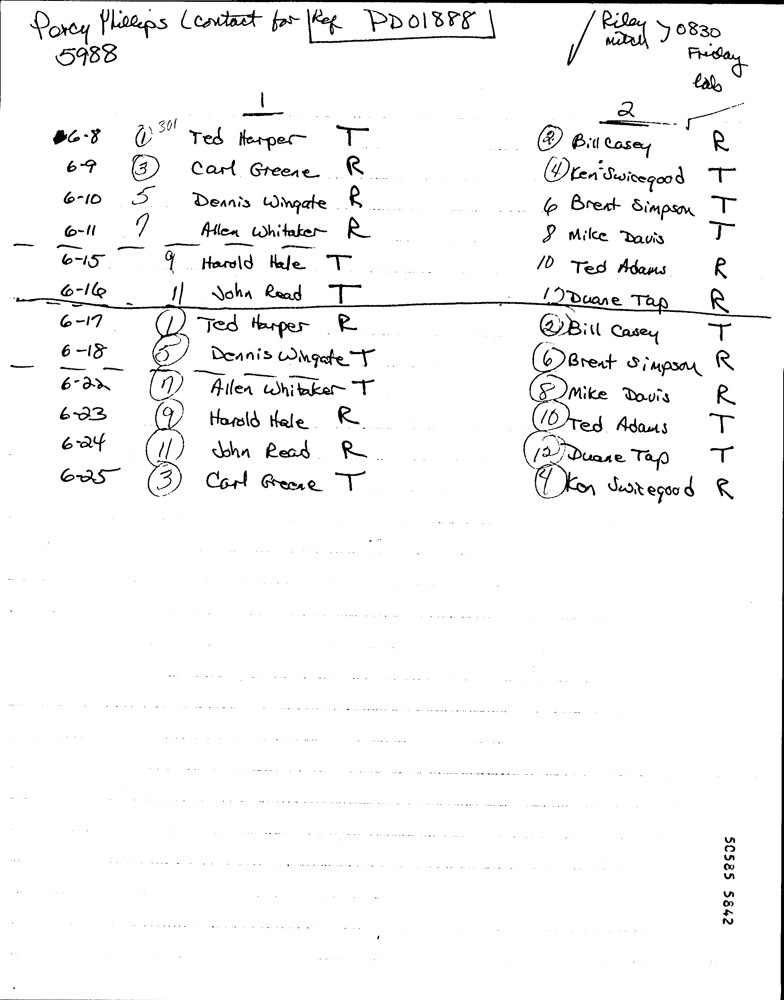 Porcy Phillips (contact for Ref PD01888
5988
Riley
Mitch
0830
Friday
lab
1 2
6-8 1 301 Ted Harper T 2 Bill Casey R
6-9 3 Carl Greene R 4 Ken Swicegood T
6-10 5 Dennis Wingate R 6 Brent Simpson T
6-11 7 Allen Whitaker R 8 Mike Davis T
6-15 9 Harold Hale T 10 Ted Adams R
6-16 11 John Read T 12 Duane Tap R
6-17 1 Ted Harper R 2 Bill Casey T
6-18 5 Dennis Wingate T 6 Brent Simpson R
6-22 7 Allen Whitaker T 8 Mike Davis R
6-23 9 Harold Hale R 10 Ted Adams T
6-24 11 John Read R 12 Duane Tap T
6-25 3 Carl Greene T 4 Ken Swicegood R
50585 5842